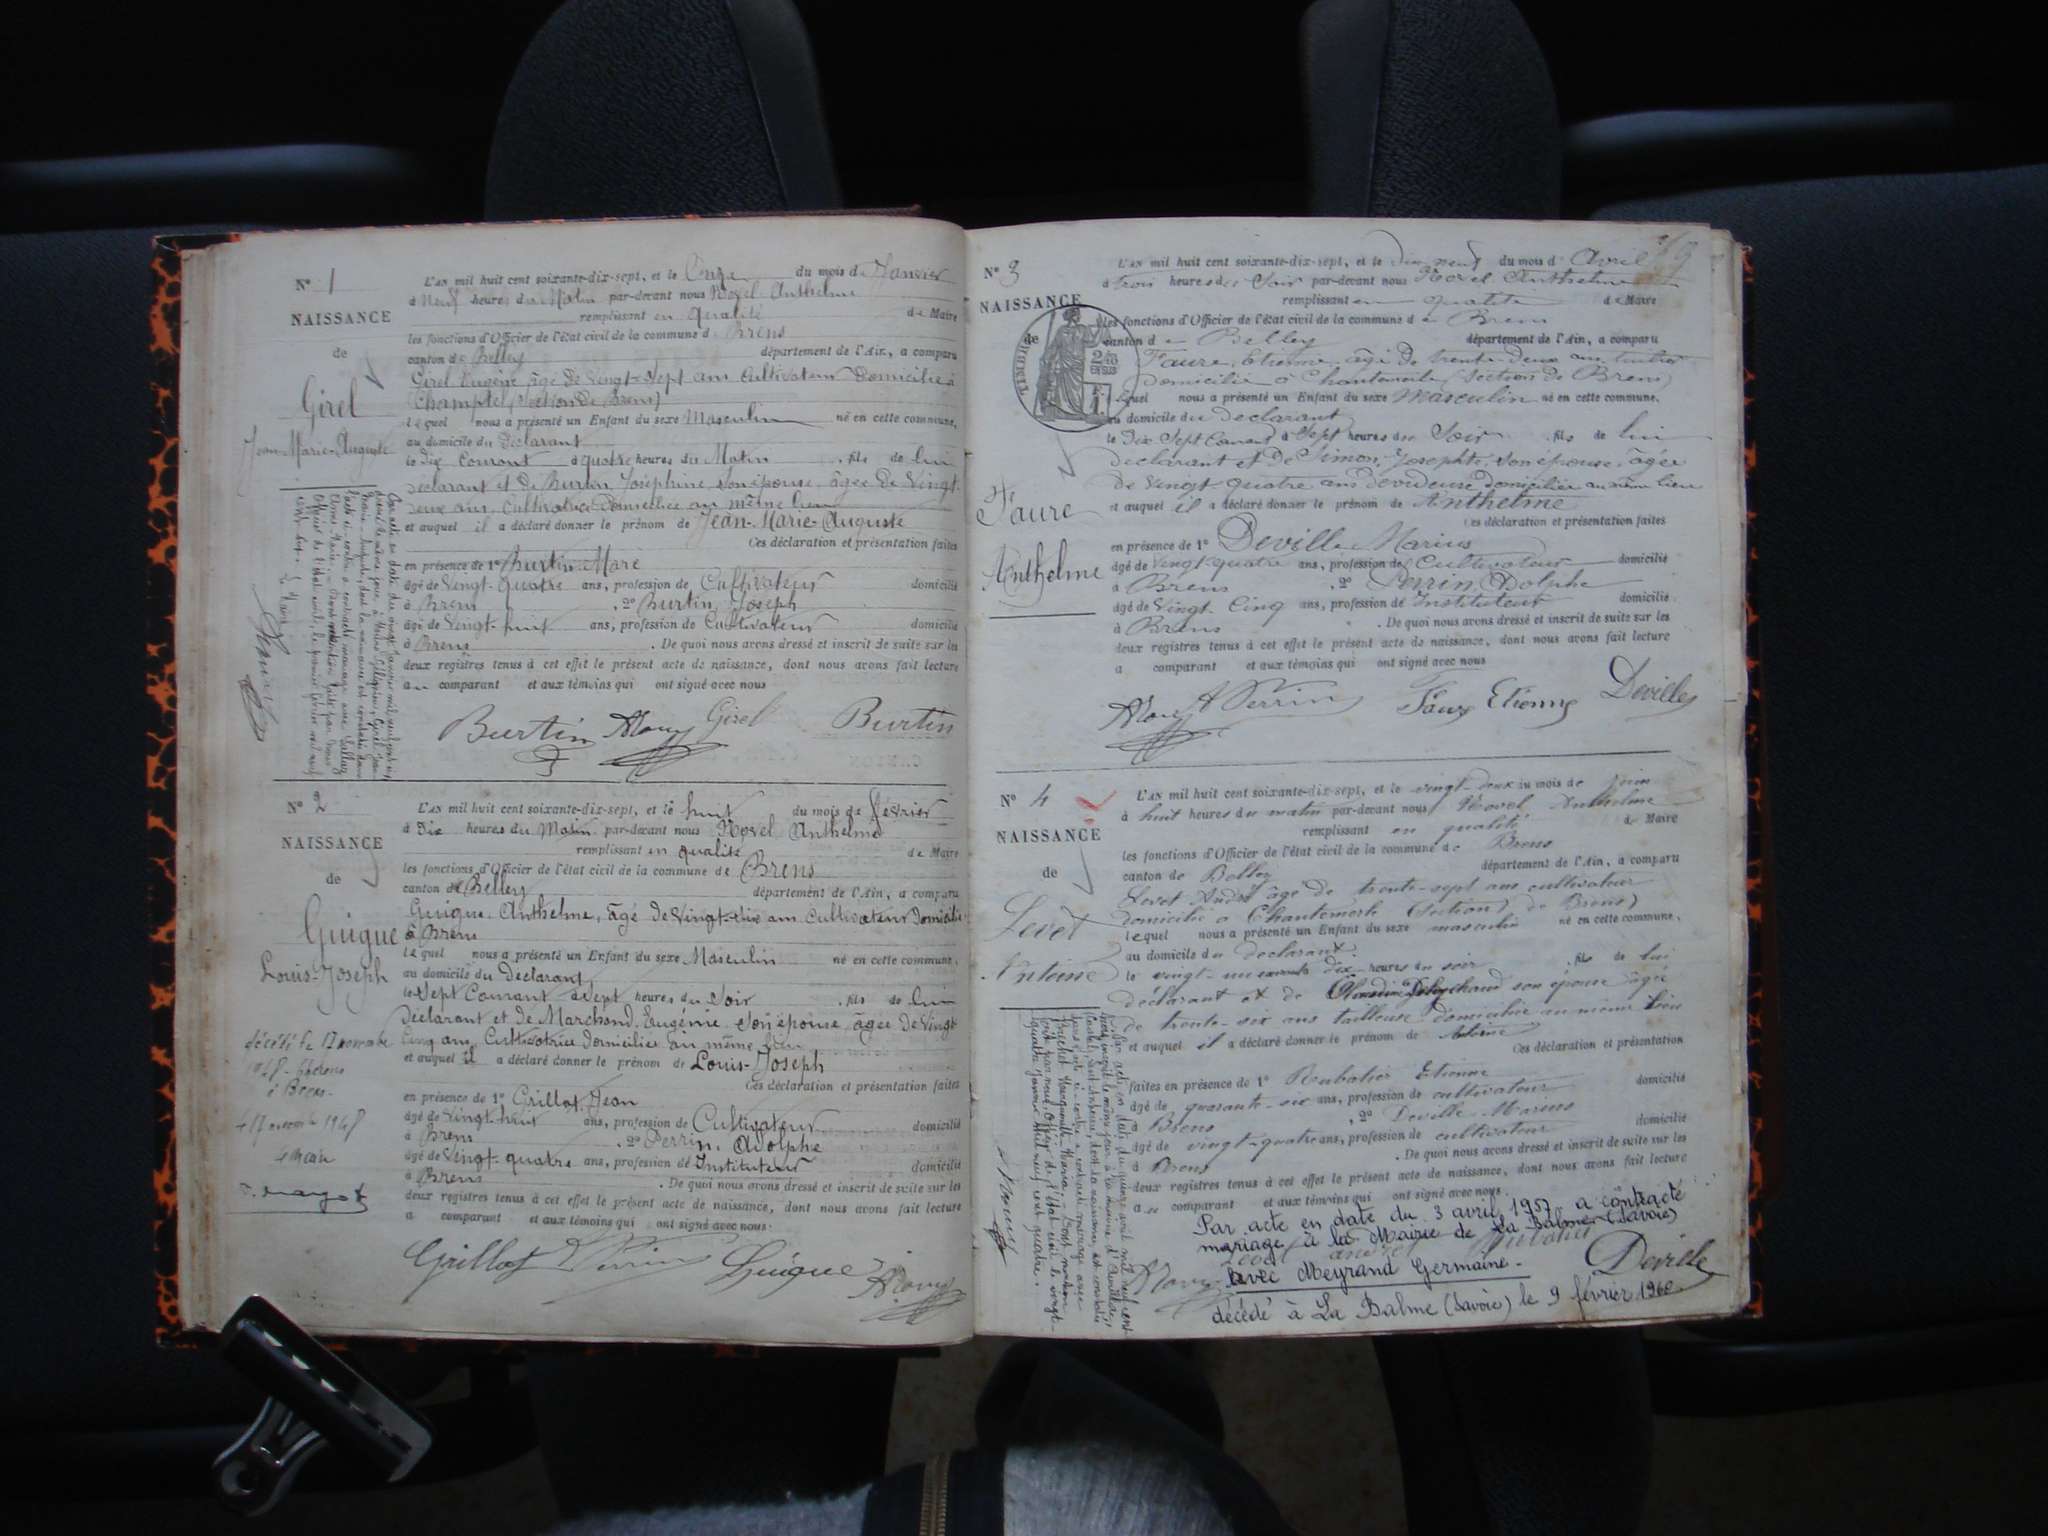 N° 1
NAISSANCE
de
Girel
Jean-Marie-Auguste
L'AN mil huit cent soixante-dix-sept, et le Onze du mois de Janvier
à Neuf heures du Matin par-devant nous Novel Anthelme
remplissant en qualité de Maire
les fonctions d'Officier de l'état civil de la commune de Brens
canton de Belley département de l'Ain, a comparu
Girel Eugène âgé de vingt-sept ans Cultivateur Domicilié à
Champtel (Section de Brens)
lequel nous a présenté un Enfant du sexe Masculin né en cette commune,
au domicile du Déclarant
le Dix Courant à quatre heures du Matin, fils de lui
Déclarant et de Burtin Joséphine, son épouse, âgée de vingt-
deux ans, Cultivatrice Domiciliée au même lieu
et auquel il a déclaré donner le prénom de Jean-Marie-Auguste
Ces déclaration et présentation faites
en présence de 1° Burtin
âgé de vingt-quatre ans, profession de Cultivateur domicilié
à Brens, 2° Burtin Joseph
âgé de vingt-huit ans, profession de Cultivateur domicilié
à Brens. De quoi nous avons dressé et inscrit de suite sur les
deux registres tenus à cet effet le présent acte de naissance, dont nous avons fait lecture
au comparant et aux témoins qui ont signé avec nous
Burtin Girel Burtin
N° 2
NAISSANCE
de
Guigue
Louis-Joseph
décédé le 17 novembre
1948
à Brens.
L'AN mil huit cent soixante-dix-sept, et le huit du mois de février
à Dix heures du Matin par-devant nous Novel Anthelme
remplissant en qualité de Maire
les fonctions d'Officier de l'état civil de la commune de Brens
canton de Belley département de l'Ain, a comparu
Guigue Anthelme, âgé de vingt-six ans Cultivateur Domicilié
à Brens
lequel nous a présenté un Enfant du sexe Masculin né en cette commune,
au domicile du Déclarant
le Sept Courant à Sept heures du Soir, fils de lui
Déclarant et de Marchand Eugénie son épouse, âgée de vingt
Cinq ans, Cultivatrice Domiciliée au même lieu
et auquel il a déclaré donner le prénom de Louis-Joseph
Ces déclaration et présentation faites
en présence de 1° Grillot Jean
âgé de vingt-huit ans, profession de Cultivateur domicilié
à Brens, 2° Perrin Adolphe
âgé de vingt-quatre ans, profession de Instituteur domicilié
à Brens. De quoi nous avons dressé et inscrit de suite sur les
deux registres tenus à cet effet le présent acte de naissance, dont nous avons fait lecture
a comparant et aux témoins qui ont signé avec nous.
Grillot Perrin Guigue
N° 3
NAISSANCE
de
TIMBRE
Faure
Anthelme
L'AN mil huit cent soixante-dix-sept, et le dix neuf du mois d'Avril
à trois heures du Soir par-devant nous Novel Anthelme
remplissant en qualité de Maire
les fonctions d'Officier de l'état civil de la commune de Brens
canton de Belley département de l'Ain, a comparu
Faure, Etienne, âgé de trente-deux ans
domicilié à Chantemerle (Section de Brens)
lequel nous a présenté un Enfant du sexe Masculin né en cette commune,
au domicile du declarant
le Dix Sept Courant à Sept heures du Soir, fils de lui
declarant et de Simon, Josephte, son épouse, âgée
de vingt-quatre ans devideuse domiciliée au même lieu
et auquel il a déclaré donner le prénom de Anthelme
Ces déclaration et présentation faites
en présence de 1° Deville Marius
âgé de vingt-quatre ans, profession de Cultivateur domicilié
à Brens, 2° Perrin Dolphe
âgé de vingt Cinq ans, profession de Instituteur domicilié
à Brens. De quoi nous avons dressé et inscrit de suite sur les
deux registres tenus à cet effet le présent acte de naissance, dont nous avons fait lecture
a comparant et aux témoins qui ont signé avec nous
A Perrin Faure Etienne Deville
N° 4
NAISSANCE
de
Levet
Antoine
L'AN mil huit cent soixante-dix-sept, et le vingt-deux du mois de juin
à huit heures du matin par-devant nous Novel Anthelme
remplissant en qualité de Maire
les fonctions d'Officier de l'état civil de la commune de Brens
canton de Belley département de l'Ain, a comparu
Levet André âgé de trente-sept ans cultivateur
domicilié à Chantemerle (section de Brens)
lequel nous a présenté un Enfant du sexe masculin né en cette commune,
au domicile du declarant
le vingt-un courant dix heures du soir, fils de lui
déclarant et de son épouse âgée
de trente-six ans tailleuse domiciliée au même lieu
et auquel il a déclaré donner le prénom de Antoine
Ces déclaration et présentation
faites en présence de 1° Etienne domicilié
âgé de quarante-six ans, profession de cultivateur
à Brens, 2° Deville Marius domicilié
âgé de vingt-quatre ans, profession de cultivateur
à Brens. De quoi nous avons dressé et inscrit de suite sur les
deux registres tenus à cet effet le présent acte de naissance, dont nous avons fait lecture
au comparant et aux témoins qui ont signé avec nous.
Par acte en date du 3 avril 1957 a contracté
mariage à la Mairie de La Balme (Savoie)
avec Meyrand Germaine.
Deville
décédé à La Balme (Savoie) le 9 février 1960.